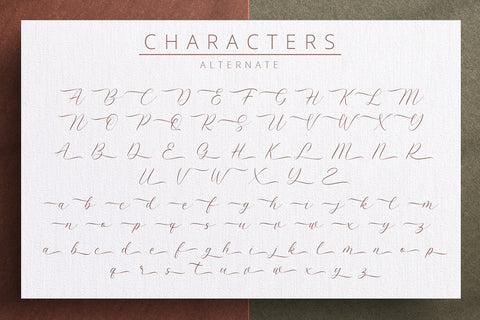 CHARACTERS
ALTERNATE
A B C D E F G H K L M
N O P Q R S U V W X Y
A B D E G H K L M N R
U V W X Y Z
a b c d e f g h i j k l m
n o p q s u v w x y z
a b c d e f g h i j k l m n o p
q r s t u v w x y z